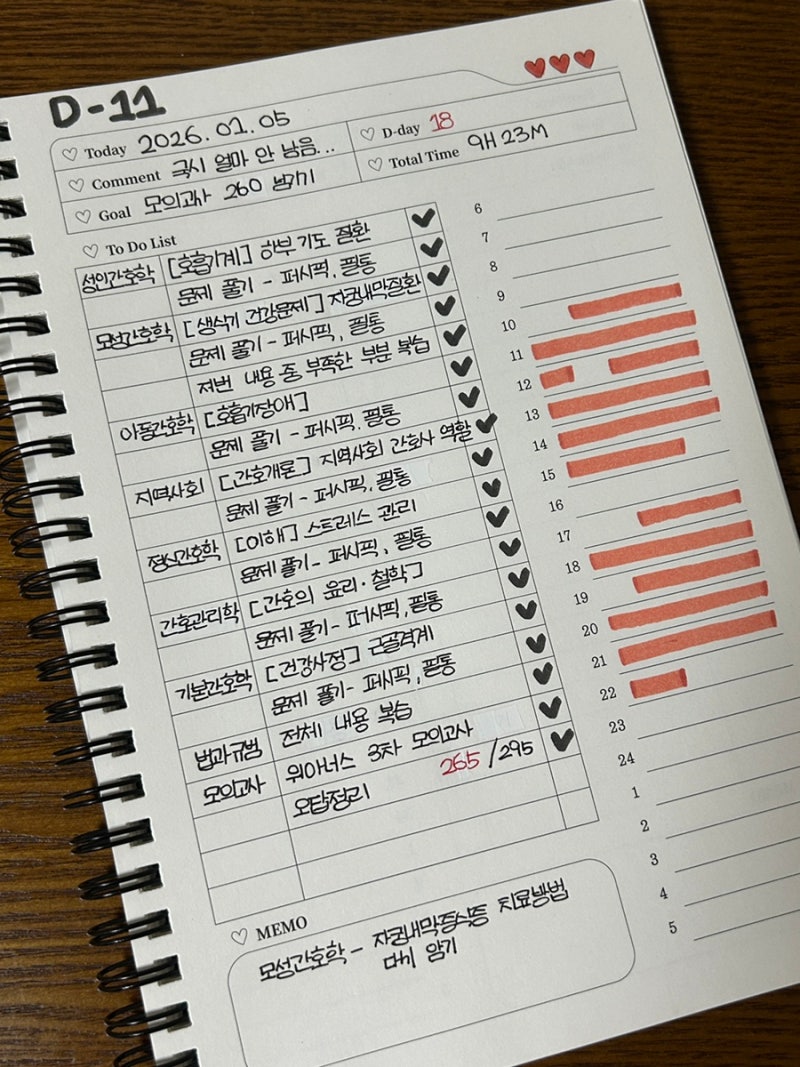 D-11
Today 2026.01.05
D-day 18
Comment 국시 얼마 안 남음...
Total Time 9H 23M
Goal 모의고사 260 넘기기
To Do List
성인간호학 [호흡기계] 하부 기도 질환
문제 풀기 - 퍼시픽, 필통
모성간호학 [생식기 건강문제] 자궁내막질환
문제 풀기 - 퍼시픽, 필통
저번 내용 중 부족한 부분 복습
아동간호학 [호흡기장애]
문제 풀기 - 퍼시픽, 필통
지역사회 [간호개론] 지역사회 간호사 역할
문제 풀기 - 퍼시픽, 필통
정신간호학 [이해] 스트레스 관리
문제 풀기 - 퍼시픽, 필통
간호관리학 [간호의 윤리·철학]
문제 풀기 - 퍼시픽, 필통
기본간호학 [건강사정] 근골격계
문제 풀기 - 퍼시픽, 필통
법과규범 전체 내용 복습
모의고사 위아너스 3차 모의고사
오답정리 265/295
6
7
8
9
10
11
12
13
14
15
16
17
18
19
20
21
22
23
24
1
2
3
4
5
MEMO
모성간호학 - 자궁내막증식증 치료방법
다시 암기